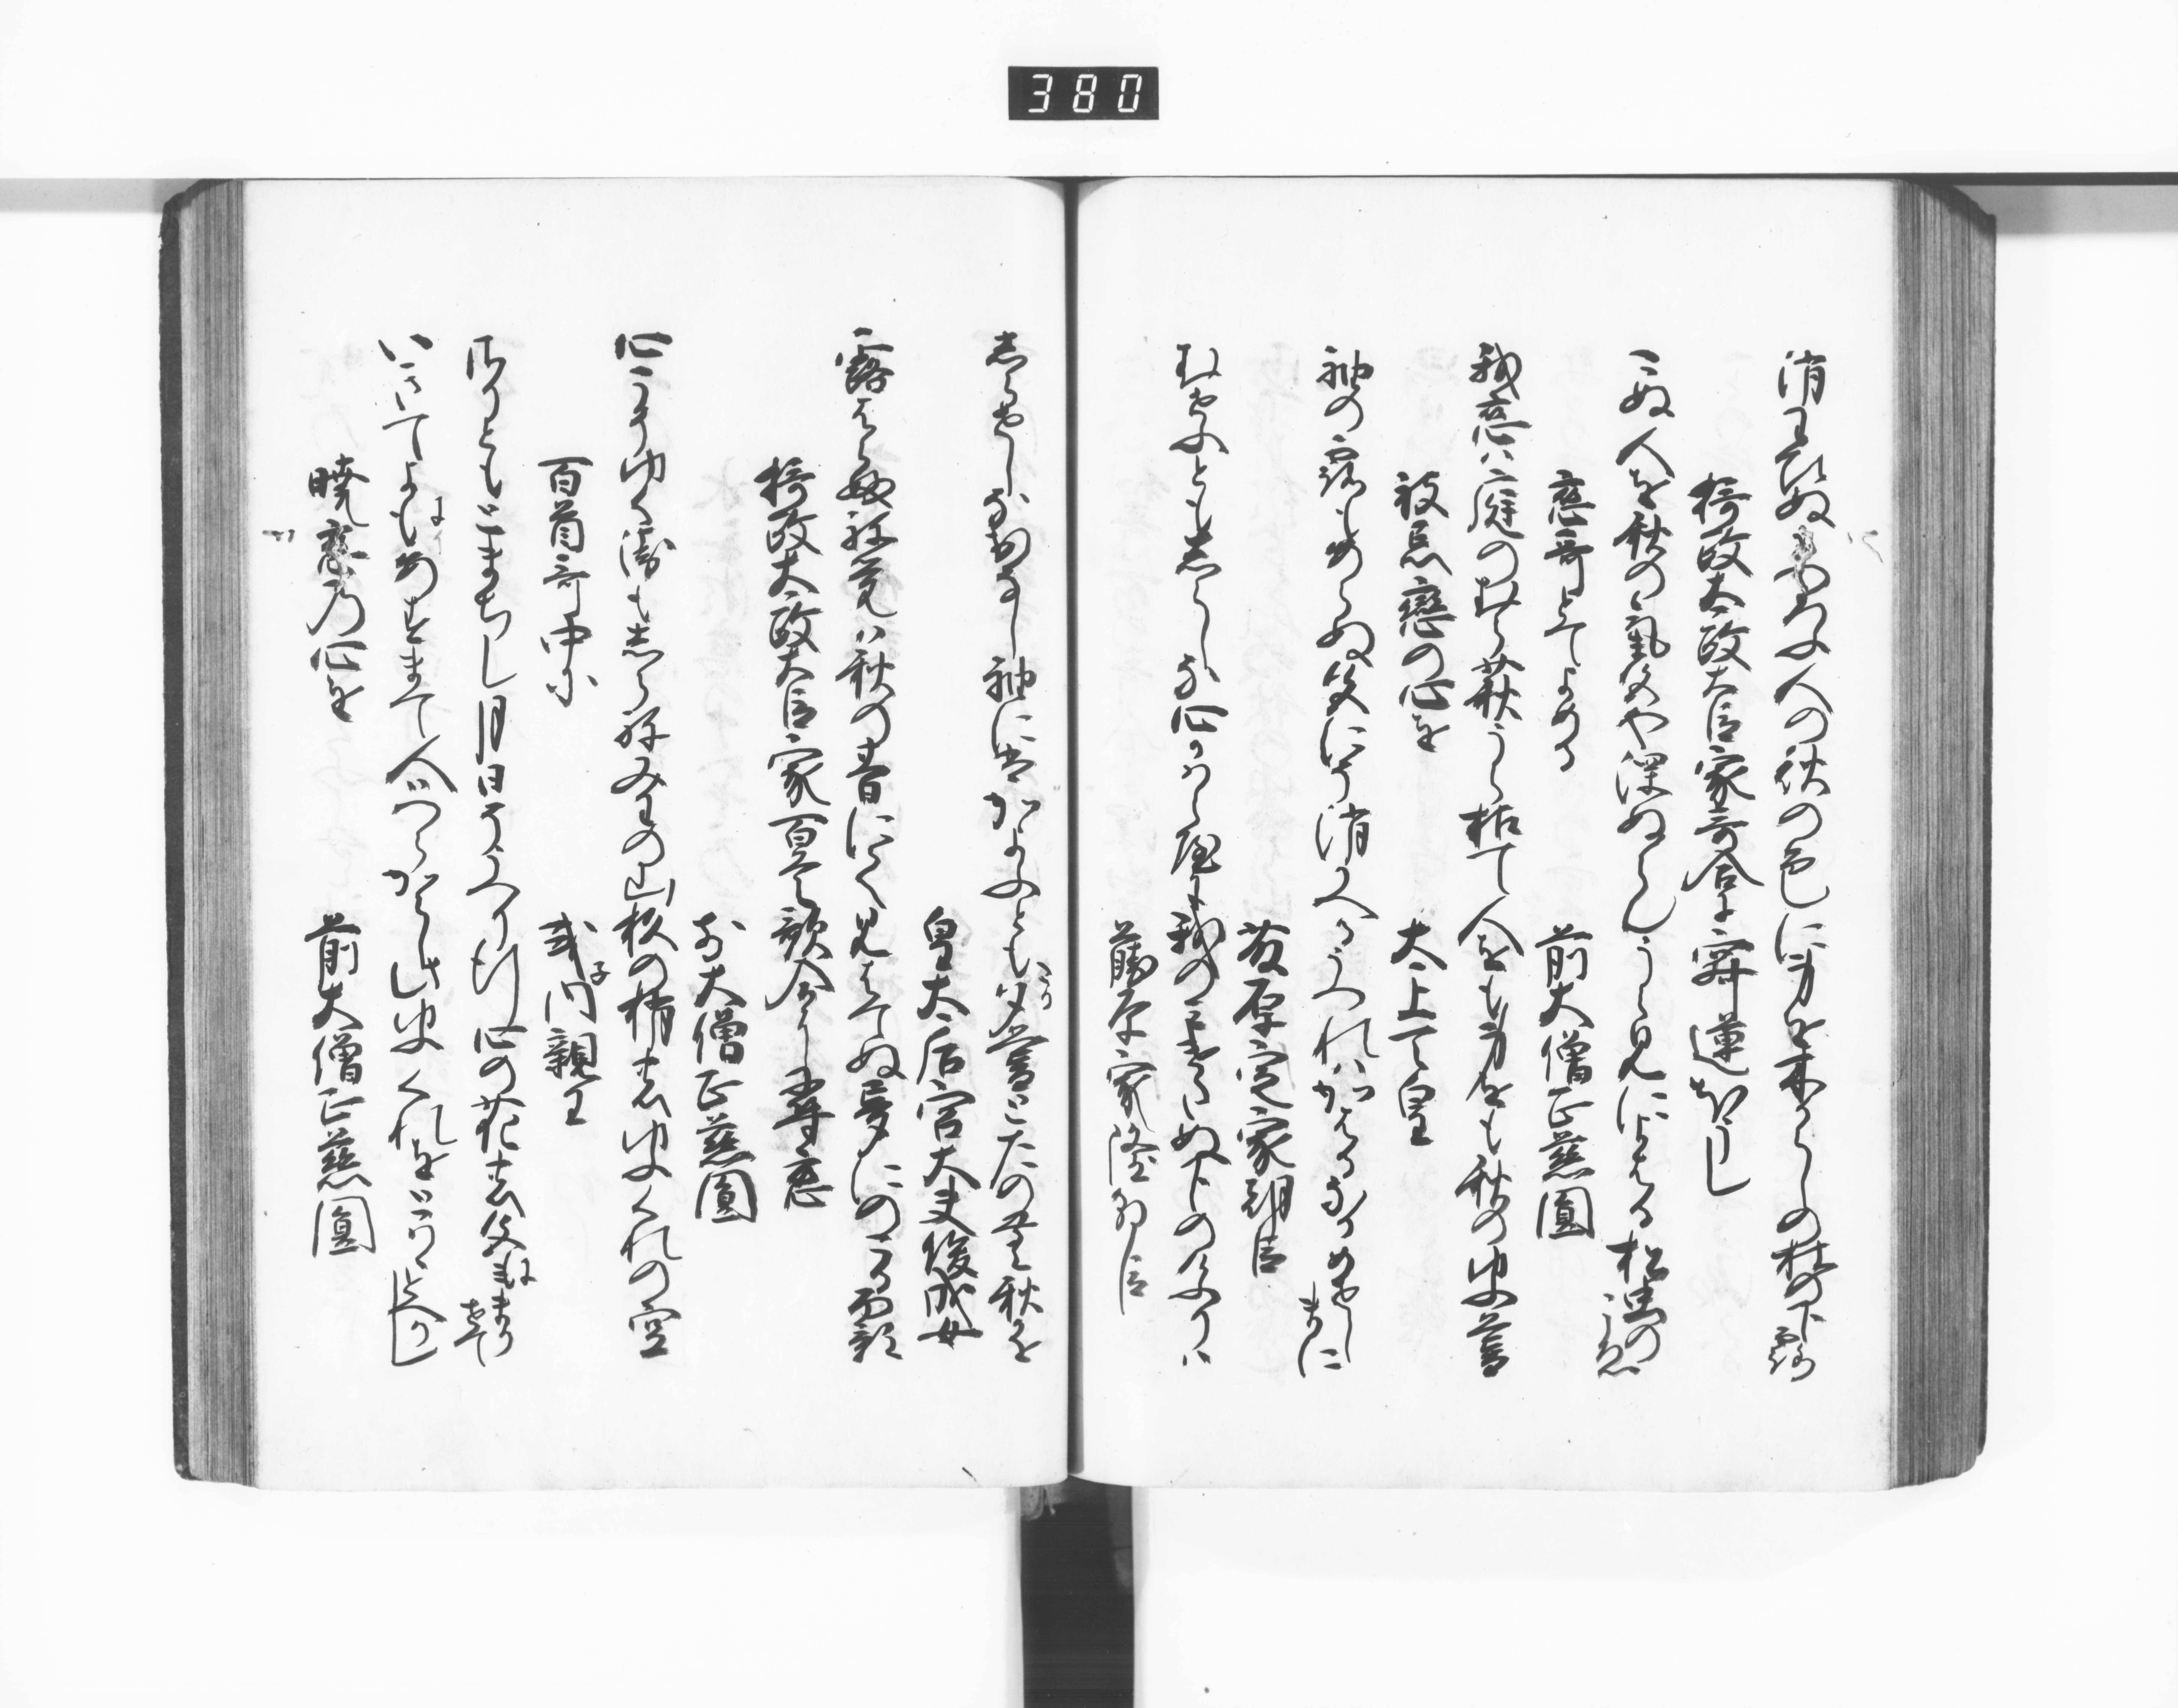 380
消わひぬうつろふ人の秋の色に身を木からしの杜の下露
摂政太政大臣家哥合に　寂蓮法し
こぬ人を秋の氣色や深ぬらんうら見によはる松虫のこゑ
恋哥とてよめる　前大僧正慈圓
我恋ハ庭のむら萩うら枯て人をも身をも秋の夕暮
被忘戀の心を　太上天皇
袖の露もあらぬ色にそ消かへるうつれハかはるなけきせしまに
藤原定家朝臣
むせふとも志らしな心かはら屋に我のミきえぬ下の煙ハ
藤原家隆朝臣
志られしなおなし袖にはかよふともたか夕暮とたのむ秋風
皇太后宮大夫俊成女
露はらふね覚ハ秋の昔にて見はてぬ夢にのこる面影
摂政太政大臣家百首歌合に尋恋
前大僧正慈圓
心こそゆくゑも志らねみわの山杉の梢の夕くれの空
百首哥中に　式子内親王
さりともとまちし月日そうつり行心の花の色にまかせて
いきてよもあすまて人ハつらからし此夕くれをとハゝとへかし
暁恋乃心を　前大僧正慈圓